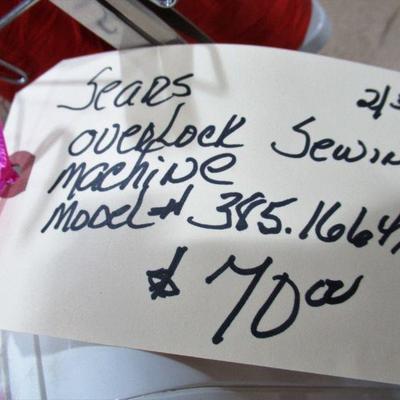 Sears 2/3
overlock Sewin
machine
Model# 385.1664
$70 00